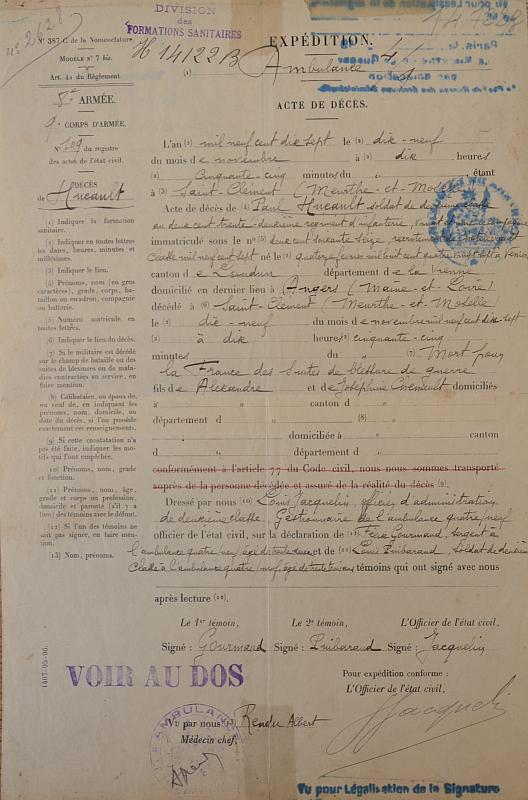 DIVISION
des
FORMATIONS SANITAIRES
n° 2628
N° 387 C de la Nomenclature.
H 14122 B
EXPÉDITION.
MODÈLE N° 7 bis.
(1) Ambulance 4/9
Art. 41 du Règlement.
8e ARMÉE.
ACTE DE DÉCÈS.
9e CORPS D'ARMÉE.
N° 109 du registre
des actes de l'état civil.
DÉCÈS
de Hucault
(1) Indiquer la formation
sanitaire.
(2) Indiquer en toutes lettres
les dates, heures, minutes et
millésimes.
(3) Indiquer le lieu.
(4) Prénoms, nom (en gros
caractères), grade, corps, ba-
taillon ou escadron, compagnie
ou batterie.
(5) Numéro matricule en
toutes lettres.
(6) Indiquer le lieu du décès.
(7) Si le militaire est décédé
sur le champ de bataille ou des
suites de blessures ou de mala-
dies contractées au service, en
faire mention.
(8) Célibataire, ou époux de,
ou veuf de, en indiquant les
prénoms, nom, domicile, au
jour du décès, si l'on possède
exactement ces renseignements.
(9) Si cette constatation n'a
pas été faite, indiquer les mo-
tifs qui l'ont empêchée.
(10) Prénoms, nom, grade
et fonction.
(11) Prénoms, nom, âge,
grade et corps ou profession
domicile et parenté (s'il y a
lieu) des témoins avec le défunt.
(12) Si l'un des témoins ne
sait pas signer, en faire men-
tion.
(13) Nom, prénoms.
L'an (2) mil neuf cent dix sept le (2) dix-neuf
du mois de novembre à (2) dix heures
Cinquante-cinq minutes du " , étant
à (3) Saint-Clément (Meurthe-et-Moselle)
Acte de décès de (4) Paul Hucault soldat de deuxième classe
au deux cent trente-deuxième régiment d'infanterie,
immatriculé sous le n° (5) deux cent soixante seize, recrutement de
Classe mil neuf cent sept né le (2) quatorze février mil huit cent quatre vingt sept à
canton de Loudun département de la Vienne
domicilié en dernier lieu à (Angers (Maine-et-Loire)
décédé à (6) Saint-Clément (Meurthe-et-Moselle)
le (2) dix-neuf du mois de novembre mil neuf cent dix-sept
(2) à dix heures (2) cinquante-cinq
minutes du " (7) Mort pour
la France des suites de blessure de guerre
fils de Alexandre et de Joséphine domiciliés
à " canton d "
département d " (8) "
domiciliée à " canton
d " département d "
conformément à l'article 77 du Code civil, nous nous sommes transporté
auprès de la personne décédée et assuré de la réalité du décès (9).
Dressé par nous (10) Louis Jacquelin, officier d'administration
de deuxième classe, Gestionnaire de l'ambulance quatre/neuf
officier de l'état civil, sur la déclaration de (11) Gourmand, sergent à
l'ambulance quatre/neuf âgé de trente et de (11) Louis soldat de deuxième
Classe à l'ambulance quatre/neuf, âgé de trente trois ans témoins qui ont signé avec nous
après lecture (12).
Le 1er témoin, Le 2e témoin, L'Officier de l'état civil,
Signé : Gourmand Signé : Signé : Jacquelin
VOIR AU DOS
1407-95-96.
Pour expédition conforme :
L'Officier de l'état civil,
Jacquelin
AMBULANCE
Vu par nous (13) Rendu Albert
Médecin chef,
Vu pour Légalisation de la Signature